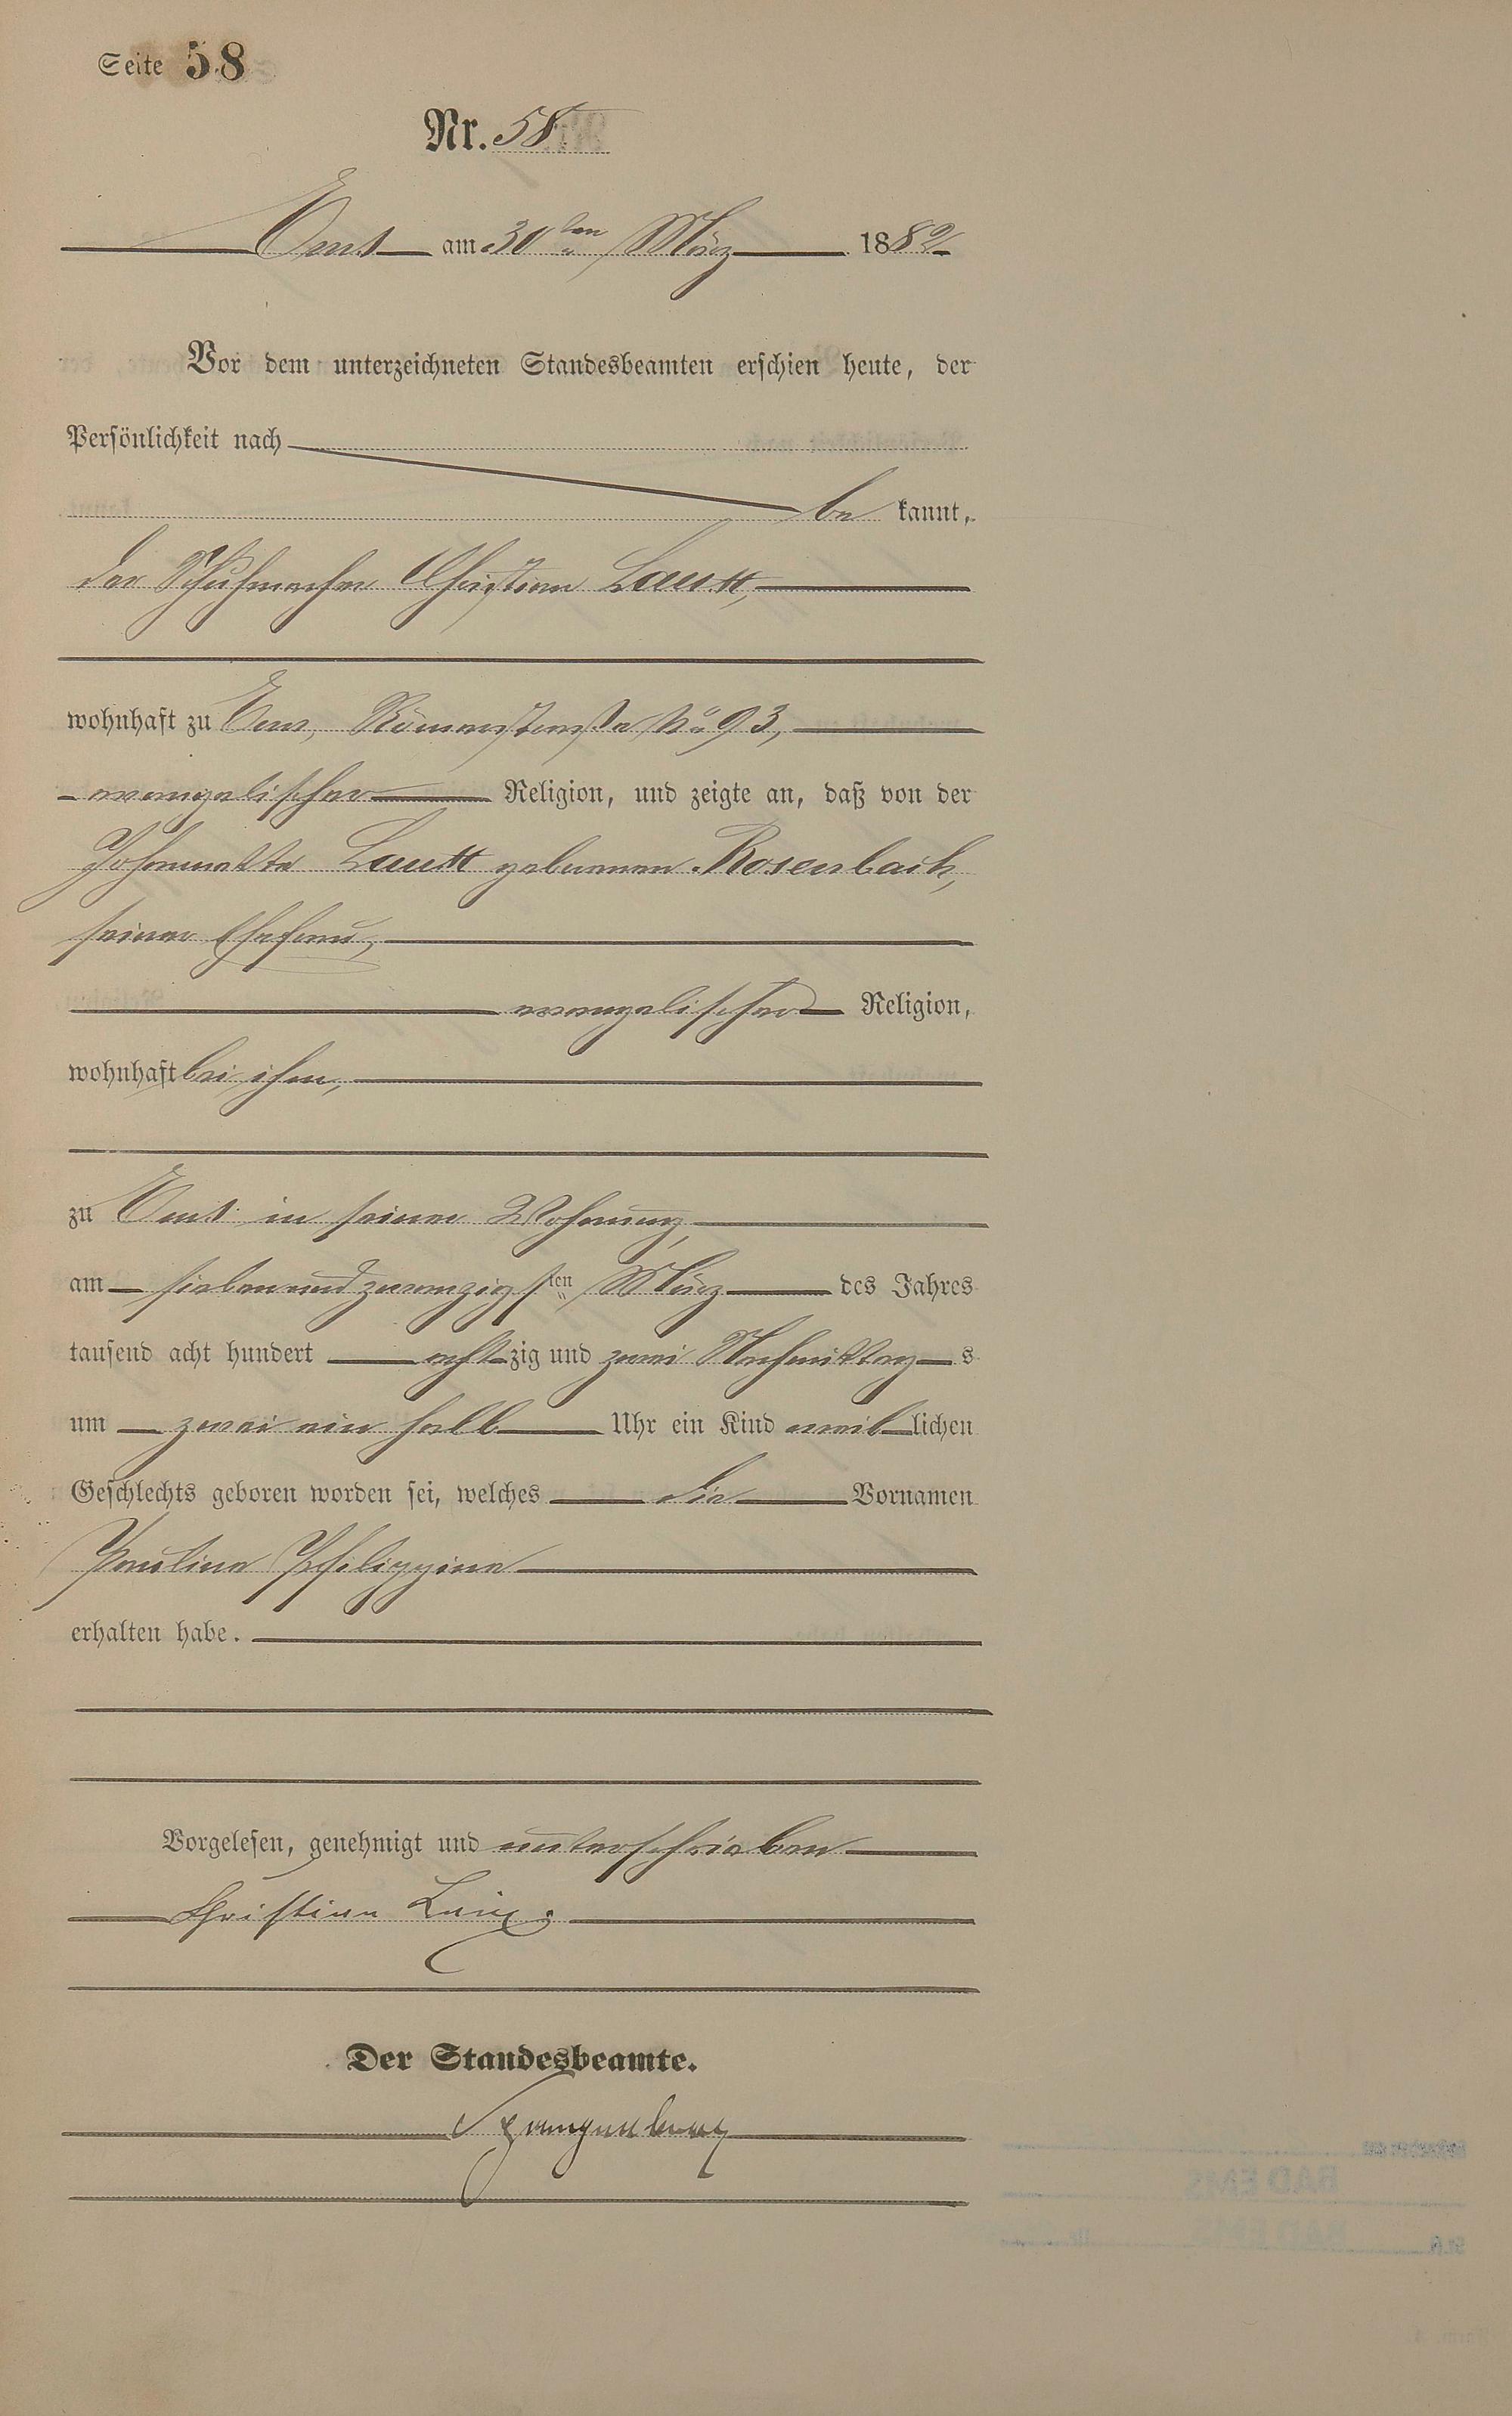 Seite 58
Nr. 58.
Ems am 30ten März 1882
Vor dem unterzeichneten Standesbeamten erschien heute, der
Persönlichkeit nach
be kannt,
der Schuhmacher Christian
wohnhaft zu Ems, Römerstraße No 93,
evangelischer Religion, und zeigte an, daß von der
Johannette geborenen Rosenbach,
seiner Ehefrau,
evangelischer Religion,
wohnhaft bei ihm,
zu Ems in seiner Wohnung,
am siebenundzwanzigsten März des Jahres
tausend acht hundert achtzig und zwei Nachmittags
um zwei ein halb Uhr ein Kind weiblichen
Geschlechts geboren worden sei, welches die Vornamen
Pauline Philippine
erhalten habe.
Vorgelesen, genehmigt und unterschrieben
Christian
Der Standesbeamte.
Spangenberg
BAD EMS
BAD EMS